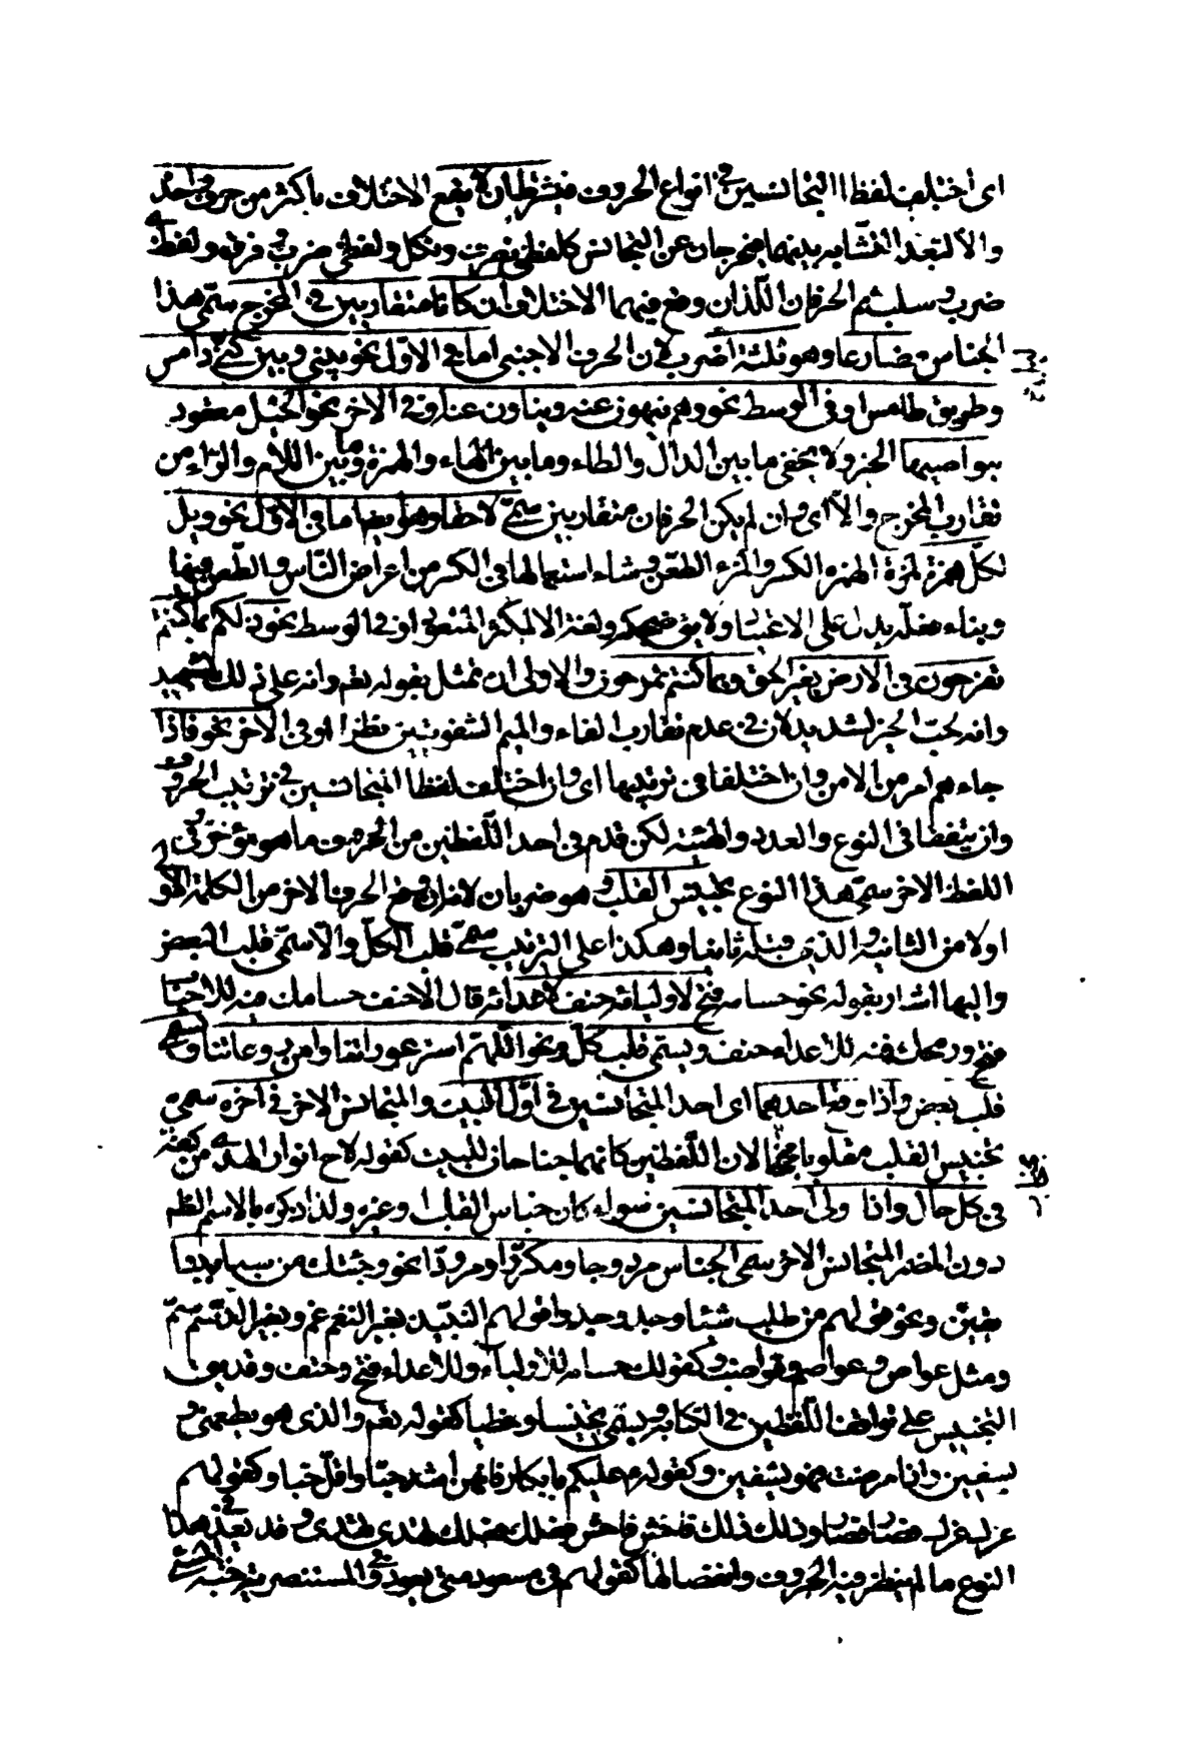 اى اختلف لفظا المتجانسين فى انواع الحروف فيشترط ان لا يقع الاختلاف باكثر من حرف واحد
والا لبعد التشابه بينهما فيخرجان عن التجانس كلفظى نصرت ونكل ولفظى ضرب وفرق ولفظى
ضرب وسلب ثم الحرفان اللذان وقع فيهما الاختلاف ان كانا متقاربين فى المخرج سمى هذا
الجناس مضارعا وهو ثلثة اضرب لان الحرف الاجنبى اما فى الاول نحو بينى وبين كنى دامس
وطريق طامس او فى الوسط نحو وهم ينهون عنه وينأون عنه او فى الاخر نحو الخيل معقود
بنواصيها الخير ولا يخفى ما بين الدال والطاء وما بين الهاء والهمزة وما بين اللام والراء من
تقارب المخرج والا اى وان لم يكن الحرفان متقاربين سمى لاحقا وهو ايضا اما فى الاول نحو ويل
لكل همزة لمزة الهمز الكسر واللمز الطعن وشاء استعمالها فى الكسر من اعراض الناس والطعن فيها
وبناء فعلة يدل على الاعتياد ولا يق ضحكة ولعنة الا للمكثر المتعود او فى الوسط نحو ذلكم بما كنتم
تفرحون فى الارض بغير الحق وبما كنتم تمرحون والاولى ان تمثل بقوله تعم وانه على ذلك لشهيد
وانه لحب الخير لشديد لان فى عدم تقارب الفاء والميم الشفويتين نظرا او فى الاخر نحو فاذا
جاءهم امر من الامن وان اختلفا فى ترتيبها اى وان اختلف لفظا المتجانسين فى ترتيب الحروف
وان يتفقا فى النوع والعدد والهيئة لكن قدم فى احد اللفظين من الحروف ما هو مؤخر فى
اللفظ الاخر سمى هذا النوع تجنيس القلب وهو ضربان لانه ان وقع الحرف الاخر من الكلمة الاولى
اولا من الثانية والذى قبله ثانيا وهكذا على الترتيب سمى قلب الكل والا سمى قلب البعض
واليها اشار بقوله نحو حسامه فتح لاوليائه حتف لاعدائه قال الاحنف حسامك منه للاحباب
فتح ورمحك منه للاعداء حتف ويسمى قلب كل ونحو اللهم استر عوراتنا وامن روعاتنا ويسمى
قلب بعض واذا وقع احدهما اى احد المتجانسين فى اول البيت والمتجانس الاخر فى اخره سمى
تجنيس القلب مقلوبا مجنحا لان اللفظين كانهما جناحان للبيت كقوله لاح انوار الهدى من كفه
فى كل حال واذا ولى احد المتجانسين سواء كان جناس القلب او غيره ولذا ذكره بالاسم الظم
دون المضمر المتجانس الاخر سمى الجناس مزدوجا ومكررا ومرددا نحو وجئتك من سبا بنبا
يقين ونحو قولهم من طلب شيئا وجد وجد وقولهم النبيذ بغير النغم غم وبغير الدسم سم
ومثل عواص عواصم وقواض وكقولك حسامه للاولياء وللاعداء فتح وحتف وقد يق
التجنيس على توافق اللفظين فى الكتابة ويسمى تجنيسا وخطيا كقوله تعم والذى هو يطعمنى و
يسقين واذا مرضت فهو يشفين وكقوله ع عليكم بالابكار فانهن اشد حبا واقل خبا وكقولهم
غرك عزك فصار قصار ذلك ذلك فاخش فاحش فعلك فعلك تهدى بهذا وقد يعد فى هذا
النوع ما لم ينظر فيه الى الحروف وانفصالها كقولهم فى مسعود متى يعود وفى المستنصرية جنة